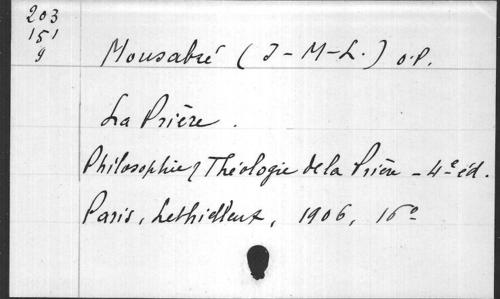 203
151
9
Monsabré (J-M-L.) O.P.
La Prière.
Philosophie & Théologie de la Prière - 4e éd.
Paris, Lethielleux, 1906, 16°